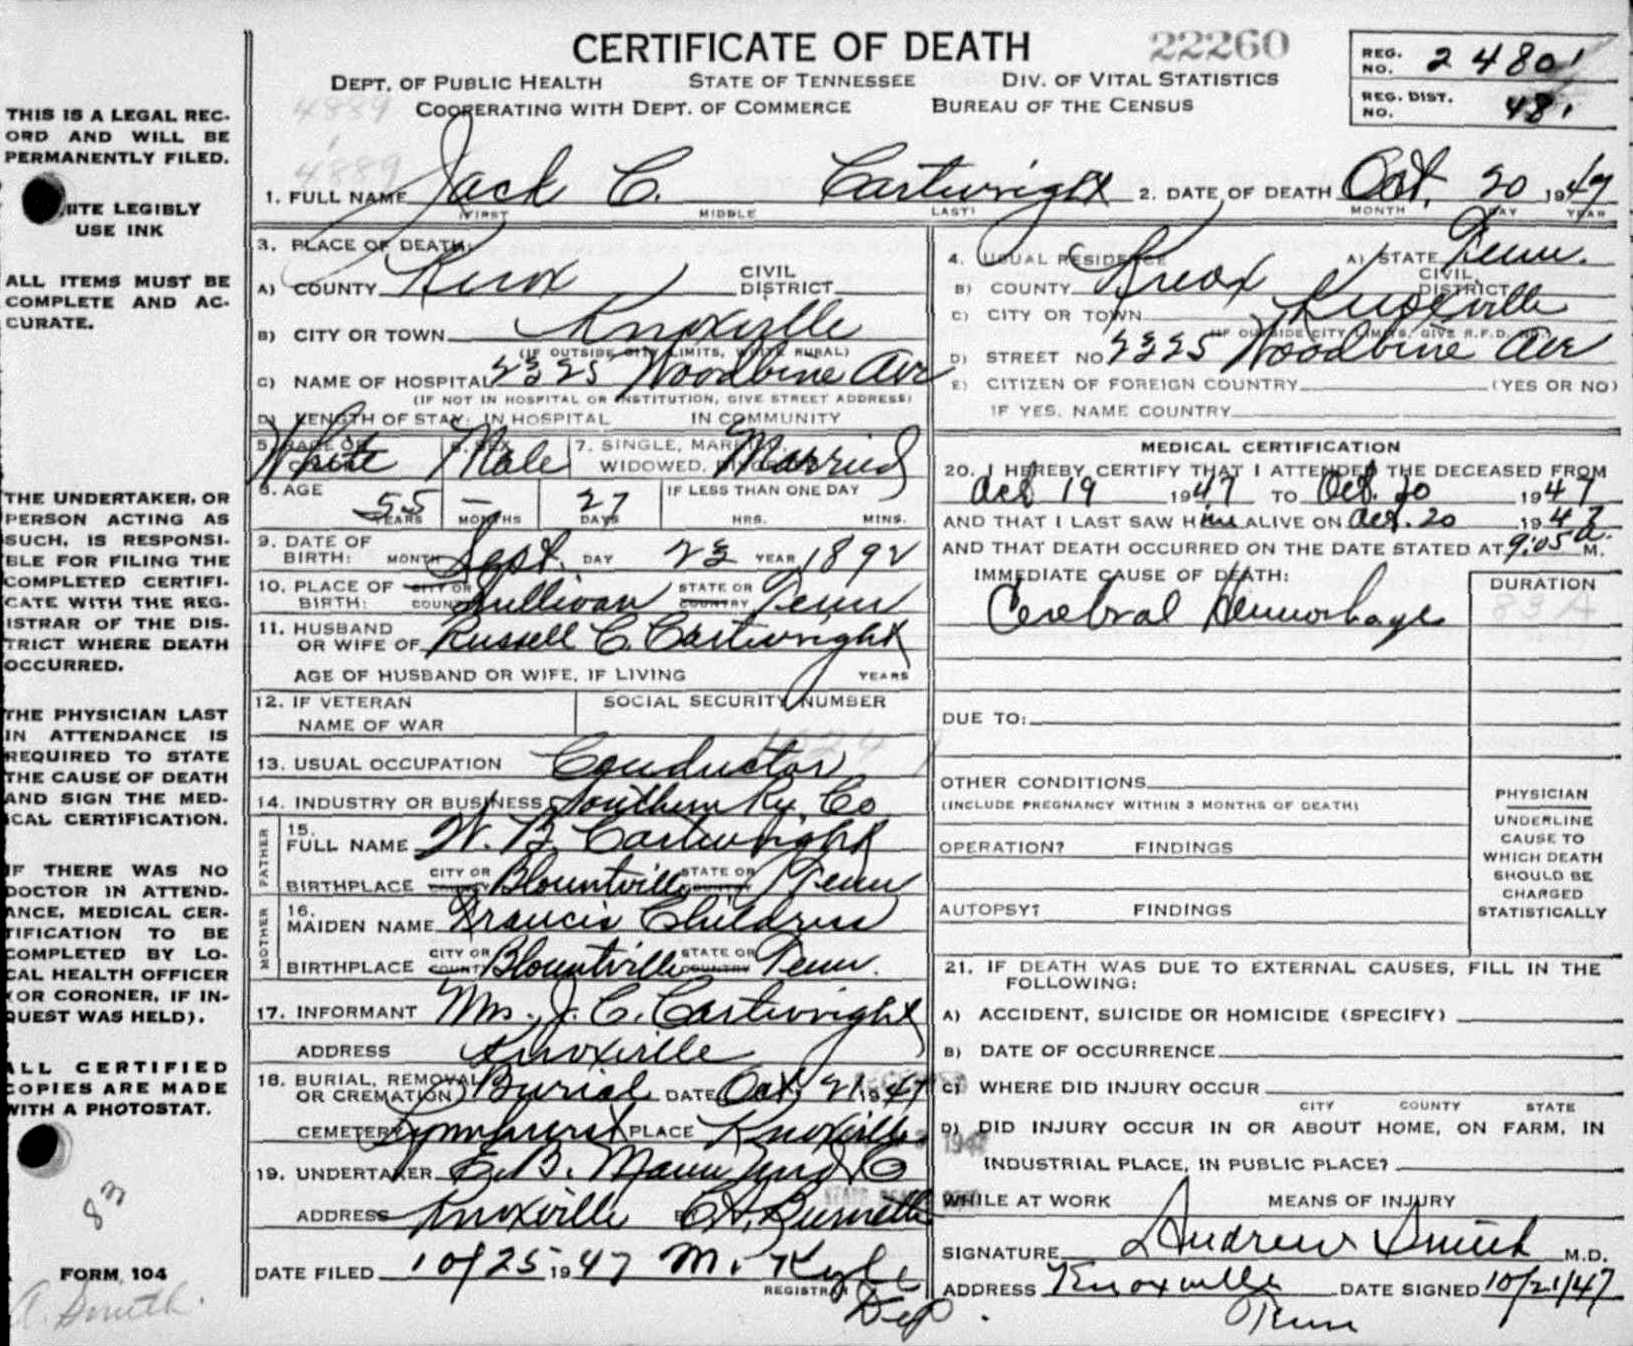 CERTIFICATE OF DEATH
22260
DEPT. OF PUBLIC HEALTH STATE OF TENNESSEE DIV. OF VITAL STATISTICS
COOPERATING WITH DEPT. OF COMMERCE BUREAU OF THE CENSUS
REG. NO. 24801
REG. DIST. NO. 481
4889
4889
THIS IS A LEGAL REC-
ORD AND WILL BE
PERMANENTLY FILED.
ITE LEGIBLY
USE INK
ALL ITEMS MUST BE
COMPLETE AND AC-
CURATE.
THE UNDERTAKER, OR
PERSON ACTING AS
SUCH, IS RESPONSI-
BLE FOR FILING THE
COMPLETED CERTIFI-
CATE WITH THE REG-
ISTRAR OF THE DIS-
TRICT WHERE DEATH
OCCURRED.
THE PHYSICIAN LAST
IN ATTENDANCE IS
REQUIRED TO STATE
THE CAUSE OF DEATH
AND SIGN THE MED-
ICAL CERTIFICATION.
IF THERE WAS NO
DOCTOR IN ATTEND-
ANCE, MEDICAL CER-
TIFICATION TO BE
COMPLETED BY LO-
CAL HEALTH OFFICER
(OR CORONER, IF IN-
QUEST WAS HELD).
ALL CERTIFIED
COPIES ARE MADE
WITH A PHOTOSTAT.
83
FORM 104
A. Smith.
1. FULL NAME Jack C. Cartwright 2. DATE OF DEATH Oct. 20 1947
(FIRST MIDDLE LAST) MONTH DAY YEAR
3. PLACE OF DEATH:
A) COUNTY Knox CIVIL DISTRICT
B) CITY OR TOWN Knoxville
(IF OUTSIDE CITY LIMITS, WRITE RURAL)
C) NAME OF HOSPITAL 2325 Woodbine Ave
(IF NOT IN HOSPITAL OR INSTITUTION, GIVE STREET ADDRESS)
D) LENGTH OF STAY: IN HOSPITAL IN COMMUNITY
4. USUAL RESIDENCE A) STATE Tenn.
B) COUNTY Knox CIVIL DISTRICT
C) CITY OR TOWN Knoxville
(IF OUTSIDE CITY LIMITS, GIVE R.F.D. NO.)
D) STREET NO 2325 Woodbine Ave
E) CITIZEN OF FOREIGN COUNTRY (YES OR NO)
IF YES, NAME COUNTRY
5. RACE OR COLOR White 6. SEX Male 7. SINGLE, MARRIED, WIDOWED, DIVORCED Married
8. AGE 55 YEARS – MONTHS 27 DAYS IF LESS THAN ONE DAY HRS. MINS.
9. DATE OF BIRTH: MONTH Sept. DAY 23 YEAR 1892
10. PLACE OF BIRTH: CITY OR COUNTY Sullivan STATE OR COUNTRY Tenn
11. HUSBAND OR WIFE OF Russell C. Cartwright
AGE OF HUSBAND OR WIFE, IF LIVING YEARS
12. IF VETERAN NAME OF WAR SOCIAL SECURITY NUMBER
13. USUAL OCCUPATION Conductor
14. INDUSTRY OR BUSINESS Southern Ry. Co
FATHER
15. FULL NAME W. B. Cartwright
BIRTHPLACE CITY OR COUNTY Blountville STATE OR COUNTRY Tenn
MOTHER
16. MAIDEN NAME Francis Childress
BIRTHPLACE CITY OR COUNTY Blountville STATE OR COUNTRY Tenn.
17. INFORMANT Mrs. J. C. Cartwright
ADDRESS Knoxville
18. BURIAL, REMOVAL OR CREMATION Burial DATE Oct 21 1947
CEMETERY Lynnhurst PLACE Knoxville
19. UNDERTAKER E. B. Mann Und Co
ADDRESS Knoxville
DATE FILED 10/25 1947 M. Kyle
REGISTRAR
Dep.
MEDICAL CERTIFICATION
20. I HEREBY CERTIFY THAT I ATTENDED THE DECEASED FROM
Oct 19 1947 TO Oct. 20 1947
AND THAT I LAST SAW Him ALIVE ON Oct. 20 1947
AND THAT DEATH OCCURRED ON THE DATE STATED AT 9:05 a. M.
IMMEDIATE CAUSE OF DEATH: DURATION
Cerebral Hemorhage 83A
DUE TO:
OTHER CONDITIONS
(INCLUDE PREGNANCY WITHIN 3 MONTHS OF DEATH)
OPERATION? FINDINGS
AUTOPSY? FINDINGS
PHYSICIAN
UNDERLINE
CAUSE TO
WHICH DEATH
SHOULD BE
CHARGED
STATISTICALLY
21. IF DEATH WAS DUE TO EXTERNAL CAUSES, FILL IN THE
FOLLOWING:
A) ACCIDENT, SUICIDE OR HOMICIDE (SPECIFY)
B) DATE OF OCCURRENCE
C) WHERE DID INJURY OCCUR
CITY COUNTY STATE
D) DID INJURY OCCUR IN OR ABOUT HOME, ON FARM, IN
INDUSTRIAL PLACE, IN PUBLIC PLACE?
WHILE AT WORK MEANS OF INJURY
SIGNATURE Andrew Smith M.D.
ADDRESS Knoxville DATE SIGNED 10/21/47
Tenn